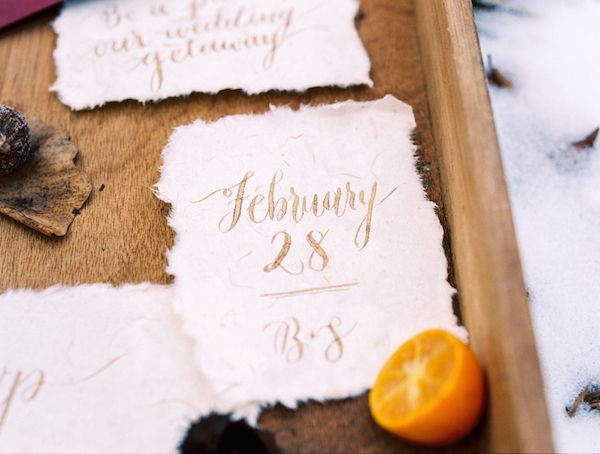 Be a
our wedding
getaway.
February
28
B+S